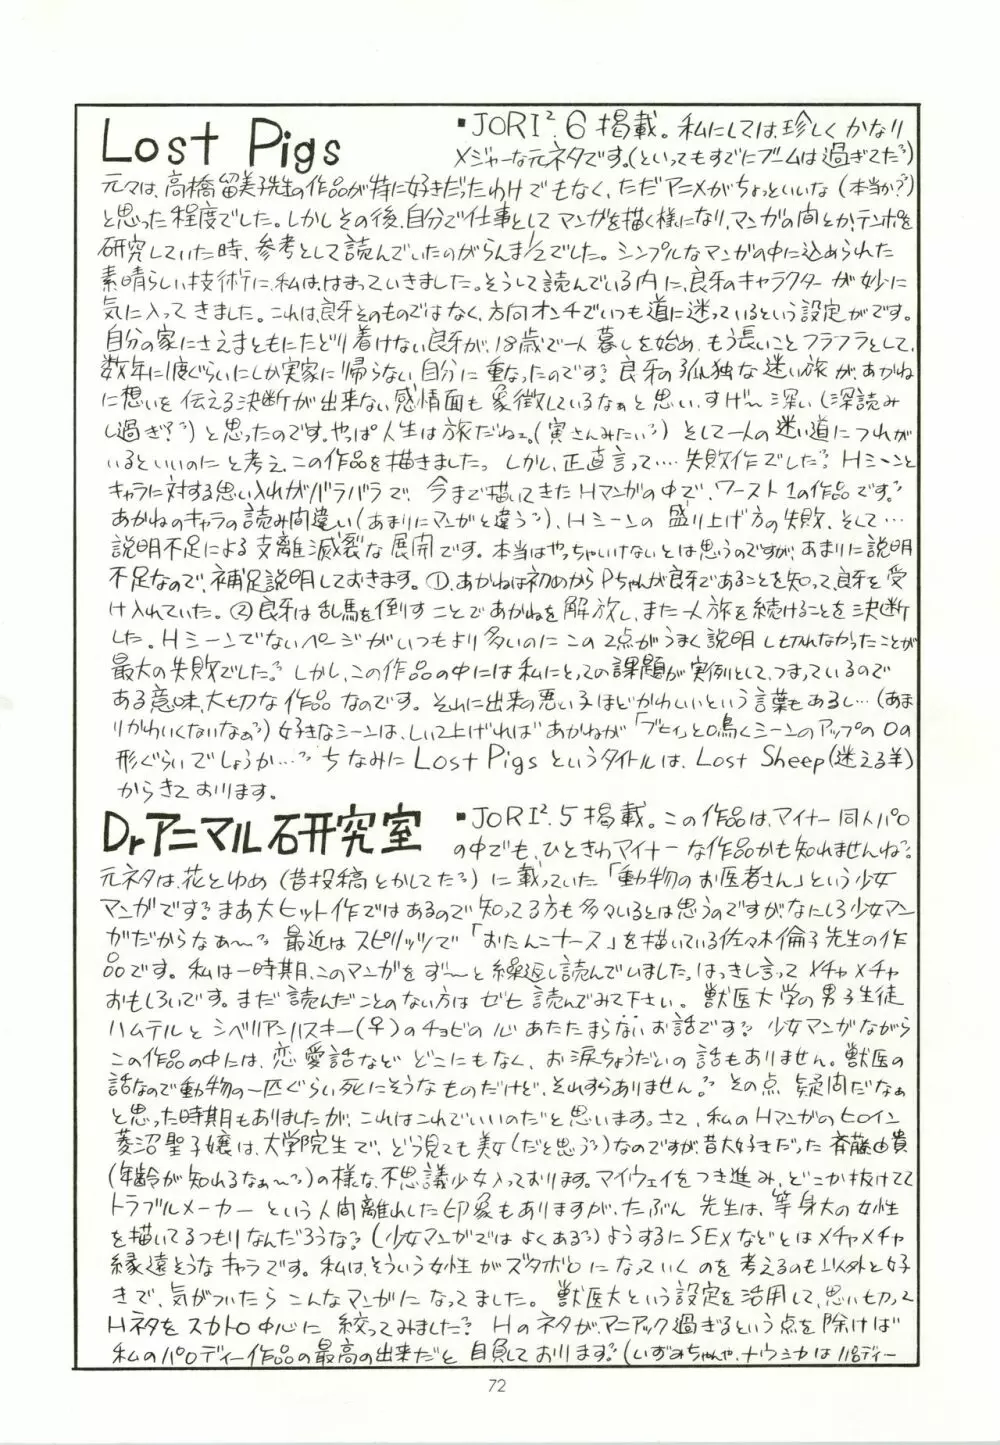 Lost Pigs
▪JORI².6 掲載。私にしては、珍しくかなり
メジャーな元ネタです。(といってもすでにブームは過ぎてた?)
元々は、高橋留美子先生の作品が特に好きだったわけでもなく、ただアニメがちょっといいな(本当か?)
と思った程度でした。しかしその後、自分で仕事としてマンガを描く様になり、マンガの間とか、テンポを
研究していた時、参考として読んでいたのがらんま1/2でした。シンプルなマンガの中に込められた
素晴らしい技術に、私は、はまっていきました。そうして読んでいる内に、良牙のキャラクターが妙に
気に入ってきました。これは、良牙そのものではなく、方向オンチでいつも道に迷っているという設定がです。
自分の家にさえまともにたどり着けない良牙が、18歳で一人暮しを始め、もう長いことフラフラとして、
数年に1度ぐらいにしか実家に帰らない自分に重なったのです? 良牙の孤独な迷い旅が、あかね
に想いを伝える決断が出来ない感情面も象徴しているなぁと思い、すげ〜深い(深読み
し過ぎ??)と思ったのです。やっぱ人生は旅だねェ。(寅さんみたい?) そして一人の迷い道につれが
いるといいのにと考え、この作品を描きました。しかし、正直言って‥‥失敗作でした? Hシーンと
キャラに対する思い入れがバラバラで、今まで描いてきたHマンガの中で、ワースト1の作品です。?
あかねのキャラの読み間違い(あまりにマンガと違う?)、Hシーンの盛り上げ方の失敗、そして…
説明不足による支離滅裂な展開です。本当はやっちゃいけないとは思うのですが、あまりに説明
不足なので、補足説明しておきます。①、あかねは初めからPちゃんが良牙であることを知って、良牙を受
け入れていた。②良牙は乱馬を倒すことであかねを解放し、また一人旅を続けることを決断
した。Hシーンでないページがいつもより多いのにこの2点がうまく説明し切れなかったことが
最大の失敗でした? しかし、この作品の中には私にとっての課題が実例として、つまっているので
ある意味、大切な作品なのです。それに出来の悪い子ほどかわいいという言葉もあるし…(あま
りかわいくないなぁ?)好きなシーンは、しいて上げればあかねが「ブヒィ」と鳴くシーンのアップの口の
形ぐらいでしょうか…? ちなみにLost Pigsというタイトルは、Lost Sheep(迷える羊)
からきております。
Drアニマル研究室
▪JORI².5 掲載。この作品は、マイナー同人パロ
の中でも、ひときわマイナーな作品かも知れませんね?
元ネタは、花とゆめ(昔投稿とかしてた?)に載っていた「動物のお医者さん」という少女
マンガです? まあ大ヒット作ではあるので知ってる方も多々いるとは思うのですが、なにしろ少女マン
ガだからなぁ〜? 最近はスピリッツで「おたんこナース」を描いている佐々木倫子先生の作
品です。私は一時期、このマンガをず〜と繰返し読んでいました。はっきし言ってメチャメチャ
おもしろいです。まだ読んだことのない方はゼヒ読んでみて下さい。獣医大学の男子生徒
ハムテルとシベリアンハスキー(♀)のチョビの心あたたまらないお話です? 少女マンガながら
この作品の中には、恋愛話などどこにもなく、お涙ちょうだいの話もありません。獣医の
話なので動物の一匹ぐらい死にそうなものだけど、それすらありません。? その点疑問だなぁ
と思った時期もありましたが、これはこれでいいのだと思います。さて、私のHマンガのヒロイン
菱沼聖子嬢は、大学院生で、どう見ても美女(だと思う?)なのですが、昔大好きだった斉藤由貴
(年齢が知れるなぁ〜?)の様な、不思議少女入っております。マイウェイをつき進み、どこか抜けてて
トラブルメーカーという人間離れした印象もありますが、たぶん先生は、等身大の女性
を描いてるつもりなんだろうな? (少女マンガではよくある?)ようするにSEXなどとはメチャメチャ
縁遠そうなキャラです。私は、そういう女性がズタボロになっていくのを考えるのも以外と好
きで、気がついたらこんなマンガになってました。獣医大という設定を活用して、思い切って
Hネタをスカトロ中心に絞ってみました? Hのネタが、マニアック過ぎるという点を除けば
私のパロディー作品の最高の出来だと自負しております? (いずみちゃんや、ナウシカはパロディー
72